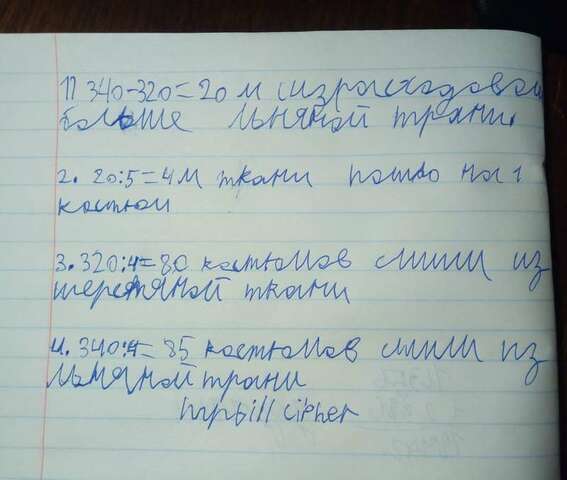 1) 340-320=20 м израсходовал
больше льняной трани.
2. 20:5=4м ткани пошло на 1
костюм
3. 320:4=80 костюмов сшили из
шерстяной ткани
4. 340:4=85 костюмов сшили из
льняной трани